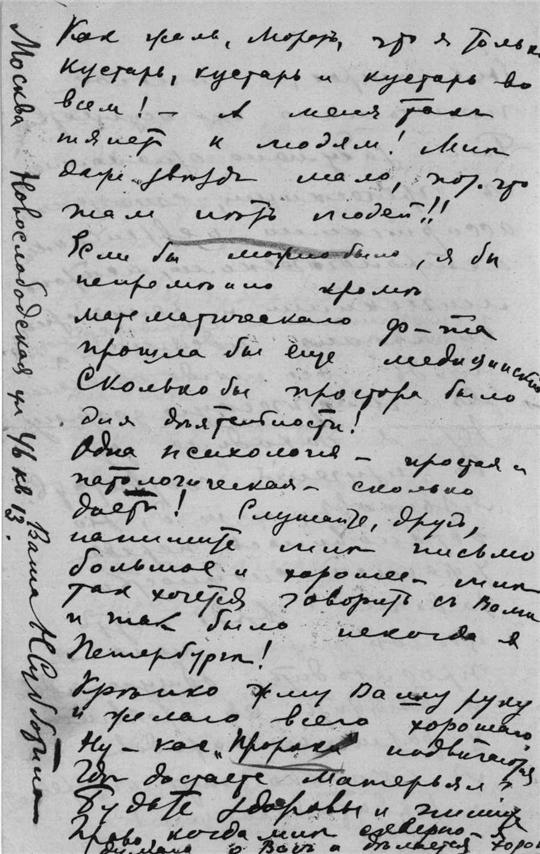 Как жаль, Морозъ, что я только
кустарь, кустарь и кустарь во
всем! — А меня такъ
тянетъ к людям! Мнѣ
даже звѣздъ мало, пот. что
там нѣтъ людей!!
Если бы можно было, я бы
непремѣнно кромѣ
математическаго ф-та
прошла бы еще медицинскій
Сколько бы простора было
для дѣятельности!
Одна психология — простая и
патологическая — сколько
даетъ! Слушайте, другъ,
напишите мнѣ письмо
большое и хорошее — мнѣ
так хочется говорить съ Вами
и так было некогда в
Петербургѣ!
Крѣпко жму Вашу руку
и желаю всего хорошаго.
Ну — как „Пророкъ" подвигается
Гдѣ достаете матерьял?
Будьте здоровы и пишите
Право, когда мнѣ скверно — я
думаю о Васъ и дѣлается хорошо
Москва Новослободская ул 4/6 кв 13.
Ваша Н Субботина